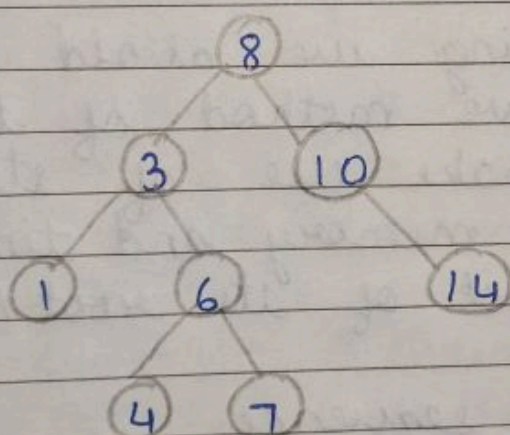 8
3 10
1 6 14
4 7